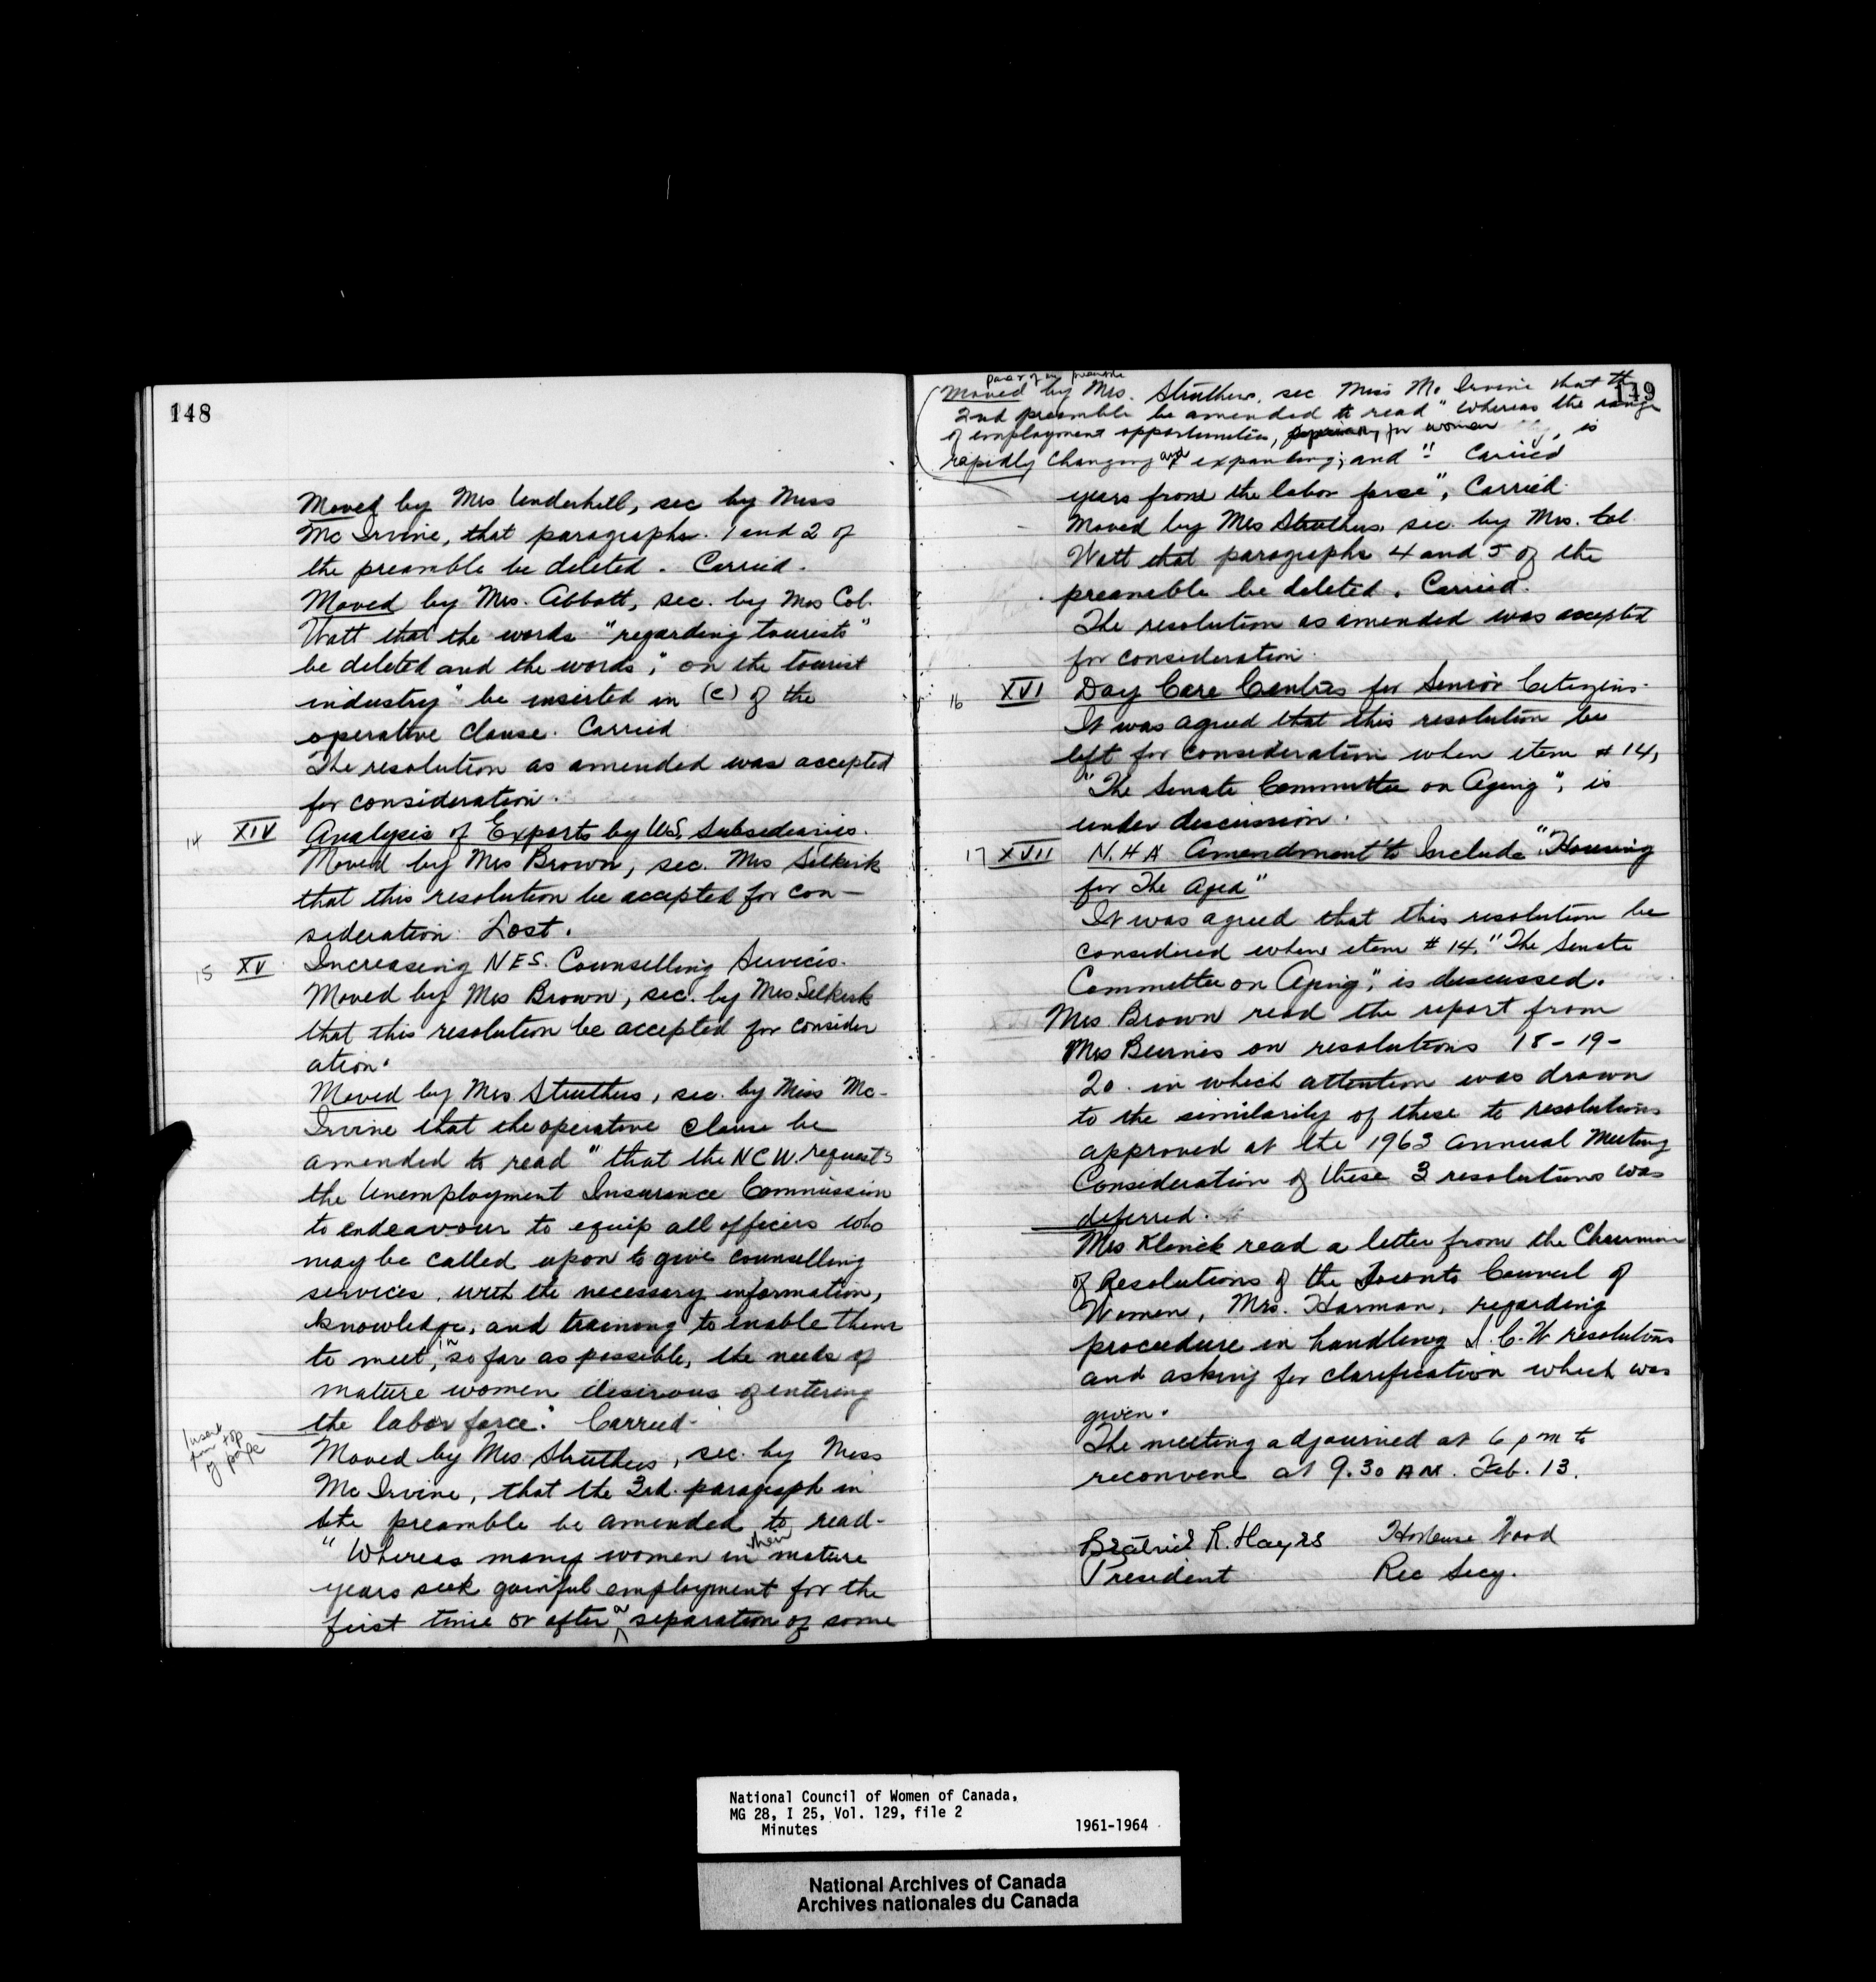 148
Moved by Mrs Underhill, sec by Miss
Mc Irvine, that paragraphs. 1 and 2 of
the preamble be deleted. Carried.
Moved by Mrs. Abbott, sec. by Mrs Col.
Watt that the words "regarding tourists"
be deleted and the words, "on the tourist
industry" be inserted in (c) of the
operative clause. Carried
The resolution as amended was accepted
for consideration.
14 XIV Analysis of Exports by U.S. Subsediaries.
Moved by Mrs Brown, sec. Mrs Selkirk
that this resolution be accepted for con-
sideration. Lost.
15 XV Increasing N.E.S. Counselling Services.
Moved by Mrs Brown, sec. by Mrs. Selkirk
that this resolution be accepted for consider
ation.
Moved by Mrs. Struthers, sec. by Miss Mc-
Irvine that the operative clause be
amended to read "that the NCW. requests
the Unemployment Insurance Commission
to endeavour to equip all officers who
may be called upon to give counselling
services, with the necessary information,
knowledge, and training to enable them
to meet, in so far as possible, the needs of
mature women desirous of entering
the labor force." Carried.
Insert
from top
of page
Moved by Mrs Struthers, sec. by Miss
Mc Irvine, that the 3rd. paragraph in
the preamble be amended to read-
"Whereas many women in their mature
years seek gainful employment for the
first time or after a separation of some
149
Moved by Mrs. Struthers, sec. Miss Mc Irvine that the
2nd preamble be amended to read "Whereas the range
of employment opportunities, for women, is
rapidly changing and expanding; and" Carried
years from the labor force", Carried.
Moved by Mrs Struthers, sec. by Mrs. Col.
Watt that paragraphs 4 and 5 of the
preamble be deleted. Carried.
The resolution as amended was accepted
for consideration.
16 XVI Day Care Centres for Senior Citizens.
It was agreed that this resolution be
left for consideration when item #14,
"The Senate Committee on Aging", is
under discussion.
17 XVII N.H.A Amendment to Include "Housing
for The Aged"
It was agreed that this resolution be
considered when item #14. "The Senate
Committee on Aging", is discussed.
Mrs. Brown read the report from
Mrs on resolutions 18-19-
20. in which attention was drawn
to the similarity of these to resolutions
approved at the 1963 Annual Meeting
Consideration of these 3 resolutions was
deferred.
Mrs Klenck read a letter from the Chairman
of Resolutions of the Toronto Council of
Women, Mrs. Harman, regarding
proceedure in handling L.C.W resolutions
and asking for clarification which was
given.
The meeting adjourned at 6 pm to
reconvene at 9.30 AM. Feb. 13.
Beatrice R. Hayes Hortense Wood
President Rec Secy.
National Council of Women of Canada,
MG 28, I 25, Vol. 129, file 2
Minutes 1961-1964
National Archives of Canada
Archives nationales du Canada